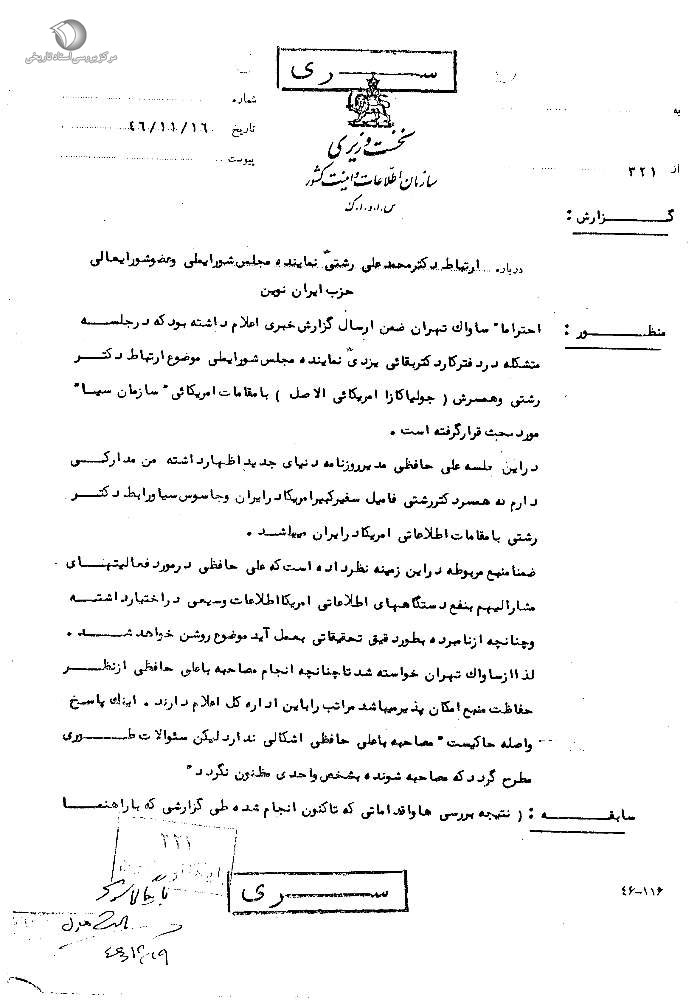 مرکز بررسی اسناد تاریخی
سـری
شماره
به
تاریخ ۴۶/۱۱/۱۶
نخست وزیری
پیوست
از ۳۲۱
سازمان اطلاعات و امنیت کشور
س.ا.و.ا.ک
گـزارش :
درباره ارتباط دکتر محمد علی رشتی نماینده مجلس شورایملی و عضو شورایعالی
حزب ایران نوین
منظـور : احتراما" ساواک تهران ضمن ارسال گزارش خبری اعلام داشته بود که در جلسـه
متشکله در دفتر کار دکتر بقائی یزدی نماینده مجلس شورایملی موضوع ارتباط دکتـر
رشتی و همسرش ( جولیا کازا امریکائی الاصل ) با مقامات امریکائی " سازمان سیـا "
مورد بحث قرار گرفته است .
در این جلسه علی حافظی مدیر روزنامه دنیای جدید اظهار داشته من مدارکـی
دارم که همسر دکتر رشتی فامیل سفیر کبیر امریکا در ایران و جاسوس سیا و رابط دکتـر
رشتی با مقامات اطلاعاتی امریکا در ایران میباشـد .
ضمنا منبع مربوطه در این زمینه نظر داده است که علی حافظی در مورد فعالیتهـای
مشارالیهم بنفع دستگاههای اطلاعاتی امریکا اطلاعات وسیعی در اختیار داشتـه
و چنانچه از نامبرده بطور دقیق تحقیقاتی بعمل آید موضوع روشن خواهد شـد .
لذا از ساواک تهران خواسته شد تا چنانچه انجام مصاحبه با علی حافظی از نظـر
حفاظت منبع امکان پذیر میباشد مراتب را باین اداره کل اعلام دارند . اینک پاسخ
واصله حاکیست " مصاحبه با علی حافظی اشکالی ندارد لیکن سئوالات طـوری
مطرح گردد که مصاحبه شونده بشخص واحدی مظنون نگردد "
سابقـه : ( نتیجه بررسی ها و اقداماتی که تاکنون انجام شده طی گزارشی که با راهنمـا
۳۲۱
سـری
۴۶-۱۱۶